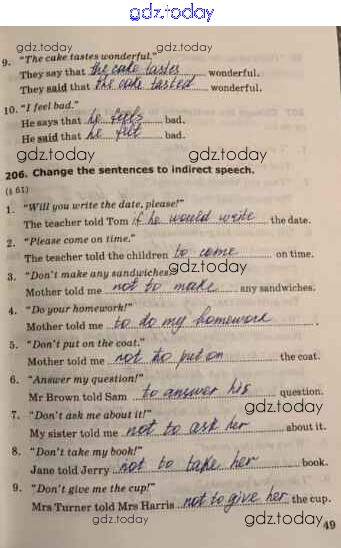 gdz.today
gdz.today gdz.today
9. "The cake tastes wonderful."
They say that the cake tastes wonderful.
They said that the cake tasted wonderful.
10. "I feel bad."
He says that he feels bad.
He said that he felt bad.
gdz.today
206. Change the sentences to indirect speech.
(§ 61)
1. "Will you write the date, please!"
The teacher told Tom if he would write the date.
gdz.today gdz.today
2. "Please come on time."
The teacher told the children to come on time.
3. "Don't make any sandwiches."
gdz.today
Mother told me not to make any sandwiches.
4. "Do your homework!"
Mother told me to do my homework.
5. "Don't put on the coat."
Mother told me not to put on the coat.
gdz.today gdz.today
6. "Answer my question!"
Mr Brown told Sam to answer his question.
gdz.today
7. "Don't ask me about it!"
My sister told me not to ask her about it.
8. "Don't take my book!"
Jane told Jerry not to take her book.
9. "Don't give me the cup!"
Mrs Turner told Mrs Harris not to give her the cup.
gdz.today gdz.today
49
gdz.today